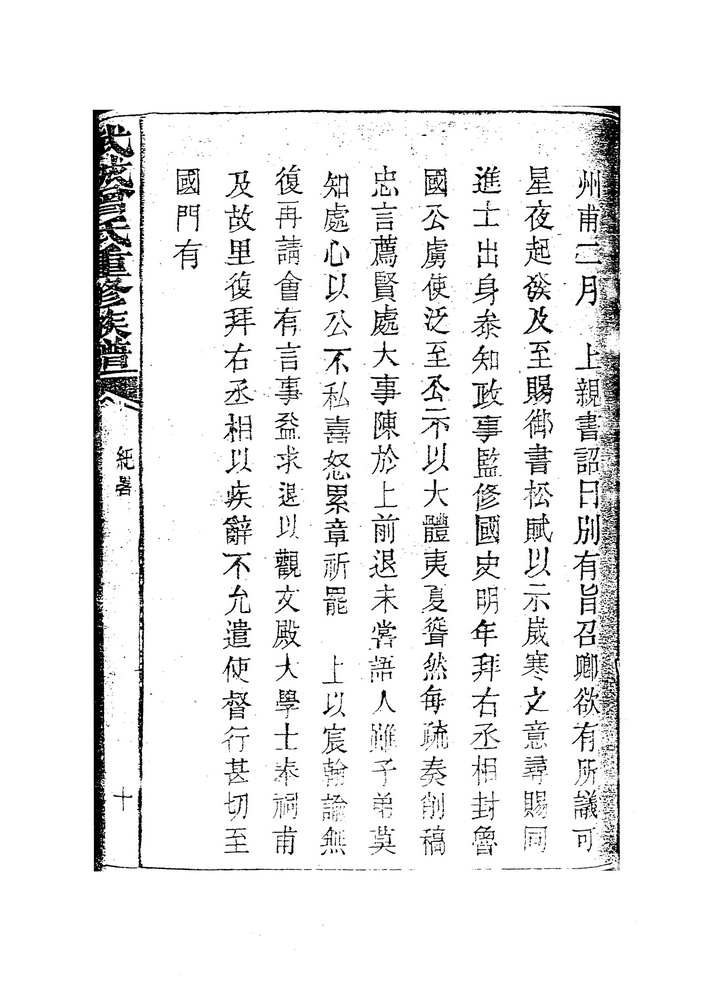 州甫二月　上親書詔曰別有旨召卿欲有所議可
星夜起發及至賜御書松賦以示歲寒之意尋賜同
進士出身叅知政事監修國史明年拜右丞相封魯
國公虜使泛至公示以大體夷夏聳然每疏奏削稿
忠言薦賢處大事陳於上前退未嘗語人雖子弟莫
知處心以公不私喜怒累章祈罷　上以宸翰諭無
復再請會有言事益求退以觀文殿大學士奉祠甫
及故里復拜右丞相以疾辭不允遣使督行甚切至
國門有
武城曾氏重修族譜
紀畧
十